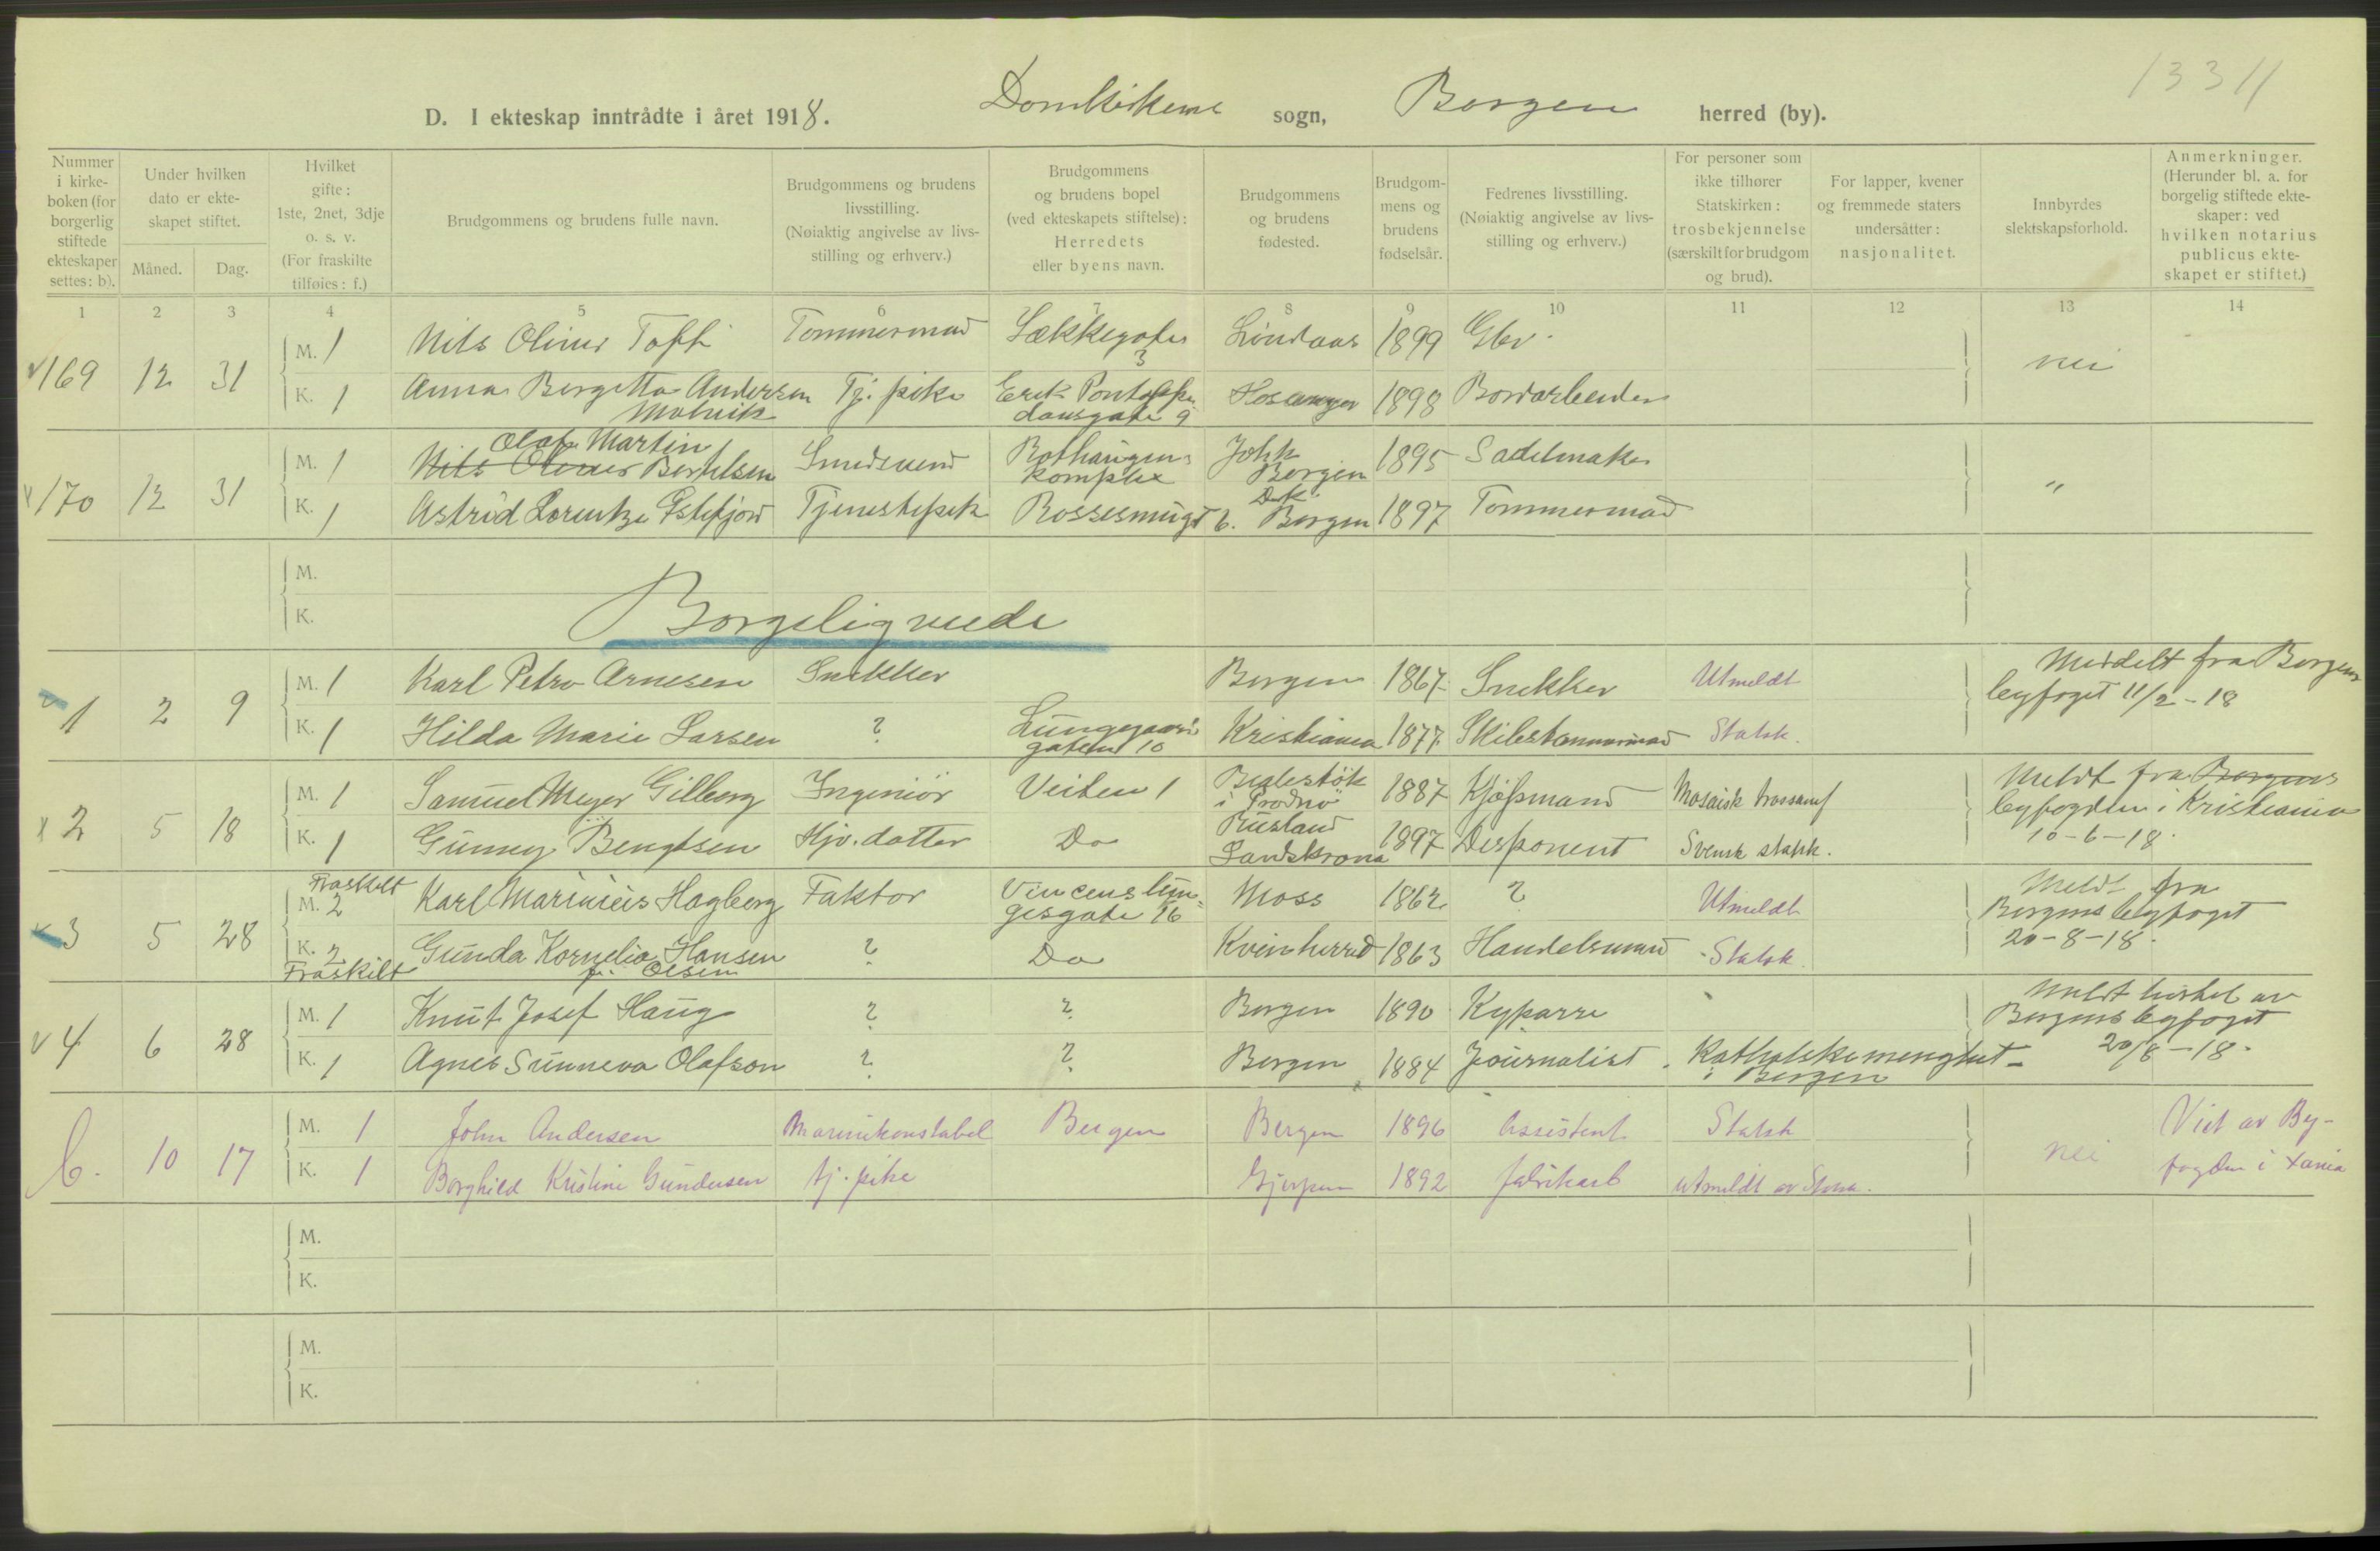 1331
D. I ekteskap inntrådte i året 1918. Domkirkens sogn, Bergen herred (by).
Nummer i kirke-boken (for borgerlig stiftede ekteskaper settes: b).
Under hvilken dato er ekte-skapet stiftet.
Måned. Dag.
Hvilket gifte: 1ste, 2net, 3dje o. s. v. (For fraskilte tilføies: f.)
Brudgommens og brudens fulle navn.
Brudgommens og brudens livsstilling. (Nøiaktig angivelse av livs-stilling og erhverv.)
Brudgommens og brudens bopel (ved ekteskapets stiftelse): Herredets eller byens navn.
Brudgommens og brudens fødested.
Brudgom-mens og brudens fødselsår.
Fedrenes livsstilling. (Nøiaktig angivelse av livs-stilling og erhverv.)
For personer som ikke tilhører Statskirken: trosbekjennelse (særskilt for brudgom og brud).
For lapper, kvener og fremmede staters undersåtter: nasjonalitet.
Innbyrdes slektskapsforhold.
Anmerkninger. (Herunder bl. a. for borgelig stiftede ekte-skaper: ved hvilken notarius publicus ekte-skapet er stiftet.)
1 2 3 4 5 6 7 8 9 10 11 12 13 14
169 12 31 M. 1 Nils Oliver Toft Tømmermand Lækkegaten 3 Lindaas 1899 Gbr. nei
K. 1 Anna Bergitta Andersen Tj. pike Erik Pontoppidansgate 9 Hosanger 1898 Bordarbeider
170 12 31 M. 1 Olaf Martin
Nils Oliver Bertelsen Smedsvend Rothaugens komplex Johk Bergen 1895 Sadelmaker "
K. 1 Astrid Lorentze Estefjord Tjenestepik Rossesmugt 6. Dk. Bergen 1897 Tømmermand
M.
K.
Borgelig viede
1 2 9 M. 1 Karl Petro Arnesen Snekker Bergen 1867 Snekker Utmeldt Meddelt fra Bergens
byfoget 11/2-18
K. 1 Hilda Marie Larsen ? Lungegaardsgaten 10 Kristiania 1877 Skibstømmermand Statsk.
2 5 18 M. 1 Samuel Meyer Gilberg Ingeniør Veiten 1 i "Grodno" Rusland 1887 Kjøpmand Mosaisk trossamf Meldt fra Bergens
byfogden i Kristiania
10-6-18.
K. 1 Gunney Bengtsen Hjv. datter Do Landskrona 1897 Disponent Svensk statsk.
3 5 28 Fraskilt
M. 2 Karl Marinius Hagberg Faktor Vincens Lungesgate 16 Moss 1862 ? Utmeldt Meldt fra
Bergens byfoget
20-8-18.
K. 2 Gunda Kornelia Hansen ? Do Kvinherred 1863 Handelsmand Statsk.
Fraskilt f. Olsen
4 6 28 M. 1 Knut Josef Haug ? ? Bergen 1890 Kyparre
Bergens byfoget
20/8-18.
K. 1 Agnes Sunneva Olafson ? ? Bergen 1884 Journalist Katholske menighet
i Bergen
b. 10 17 M. 1 John Andersen Marinekonstabel Bergen Bergen 1896 Assistent Statsk nei Viet av By-
fogden i Xania
K. 1 Borghild Kristine Gundersen tj. pike Gjerpen 1892 fabrikarb utmeldt av
M.
K.
M.
K.